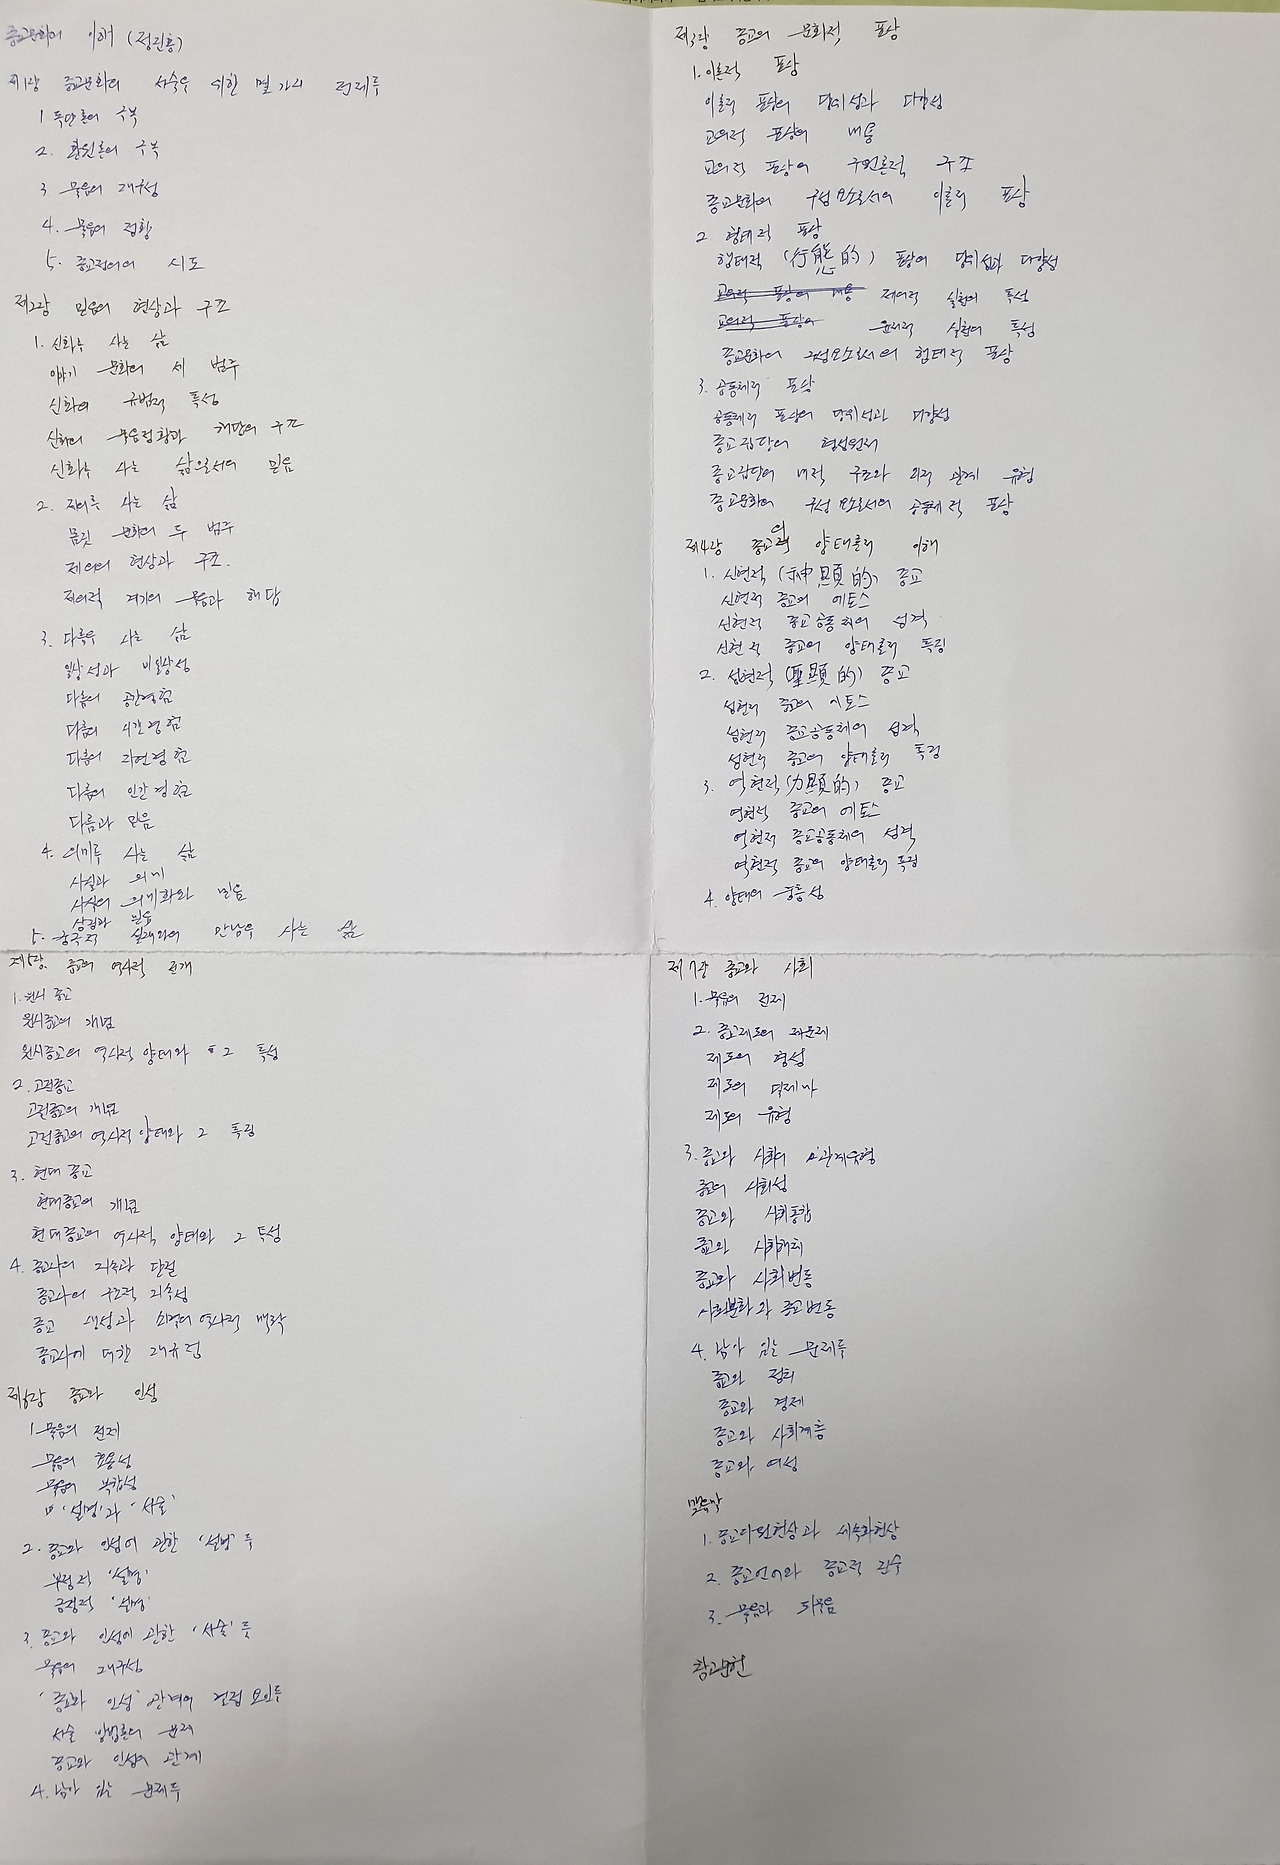 종교문화의 이해 (정진홍)
제1장 종교문화의 서술을 위한 몇 가지 전제들
1 독단론의 극복
2. 환원론의 극복
3 물음의 재구성
4. 물음의 정황
5. 종교정의의 시도
제2장 믿음의 현상과 구조
1. 신화를 사는 삶
이야기 문화의 세 범주
신화의 규범적 특성
신화의 물음정황과 해답의 구조
신화를 사는 삶으로서의 믿음
2. 제의를 사는 삶
몸짓 문화의 두 범주
제의의 현상과 구조.
제의적 계기의 물음과 해답
3. 다름을 사는 삶
일상성과 비일상성
다름의 공간경험
다름의 시간경험
다름의 자연경험
다름의 인간경험
다름과 믿음
4. 의미를 사는 삶
사실과 의미
사실의 의미화와 믿음
상징과 믿음
5. 궁극적 실재와의 만남을 사는 삶
제3장 종교의 문화적 표상
1. 이론적 표상
이론적 표상의 당위성과 다양성
교의적 표상의 내용
교의적 표상의 구원론적 구조
종교문화의 구성요소로서의 이론적 표상
2 행태적 표상
행태적 (行態的) 표상의 당위성과 다양성
교의적 표상의 내용 제의적 실천의 특성
교의적 표상의 윤리적 실천의 특성
종교문화의 구성요소로서의 행태적 표상
3. 공동체적 표상
공동체적 표상의 당위성과 다양성
종교집단의 형성원리
종교집단의 내적 구조와 외적 관계 유형
종교문화의 구성 요소로서의 공동체적 표상
제4장 종교의 양태론적 이해
1. 신현적 (神顯的) 종교
신현적 종교의 에토스
신현적 종교공동체의 성격
신현적 종교의 양태론적 특징
2. 성현적 (聖顯的) 종교
성현적 종교의 에토스
성현적 종교공동체의 성격
성현적 종교의 양태론적 특징
3. 역현적 (力顯的) 종교
역현적 종교의 에토스
역현적 종교공동체의 성격
역현적 종교의 양태론적 특징
4. 양태의 중층성
제5장. 종교의 역사적 전개
1. 원시 종교
원시종교의 개념
원시종교의 역사적 양태와 그 특성
2. 고전종교
고전종교의 개념
고전종교의 역사적 양태와 그 특징
3. 현대 종교
현대종교의 개념
현대종교의 역사적 양태와 그 특성
4. 종교사의 지속과 단절
종교사의 구조적 지속성
종교 생성과 소멸의 역사적 맥락
종교사에 대한 재규정
제6장 종교와 인성
1. 물음의 전제
물음의 효용성
물음의 복합성
'설명'과 '서술'
2. 종교와 인성에 관한 '설명'들
부정적 '설명'
긍정적 '설명'
3. 종교와 인성에 관한 '서술'들
물음의 재구성
'종교와 인성' 관계의 결정 요인들
서술 방법론의 문제
종교와 인성의 관계
4. 남아 있는 문제들
제7장 종교와 사회
1. 물음의 전제
2. 종교제도의 제문제
제도의 형성
제도의 딜레마
제도의 유형
3. 종교와 사회의 관계유형
종교의 사회성
종교와 사회통합
종교와 사회해체
종교와 사회변동
사회분화와 종교변동
4. 남아 있는 문제들
종교와 정치
종교와 경제
종교와 사회계층
종교와 여성
맺음말
1. 종교다원현상과 세속화현상
2. 종교언어와 종교적 진술
3. 물음과 되물음
참고문헌